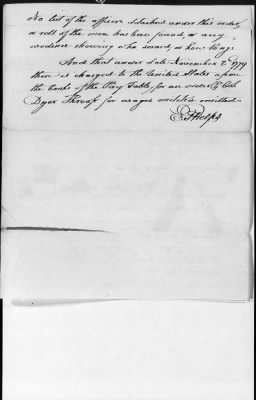 No list of the officers detached under this order,
a roll of the men has been found, or any
evidence showing who served, or how long.
And that under date November 2d 1779
there is charged to the United States upon
the books of the Pay Table, for an order Col.
Dyer Throop for wages militia omitted.
E. Phelps